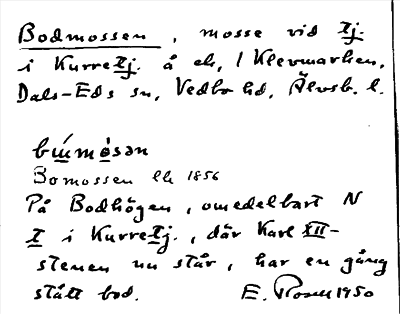 Bodmossen, mosse vid Tj.
i KurreTj. å ek, / Klevmarken,
Dals-Eds sn, Vedbo hd, Älvsb. l.
bu̇́mȯsən
Bomossen lk 1856
På Bodhögen, omedelbart N
T i KurreTj., där Karl XII-
stenen nu står, har en gång
stått bod. E. Rosell 1950